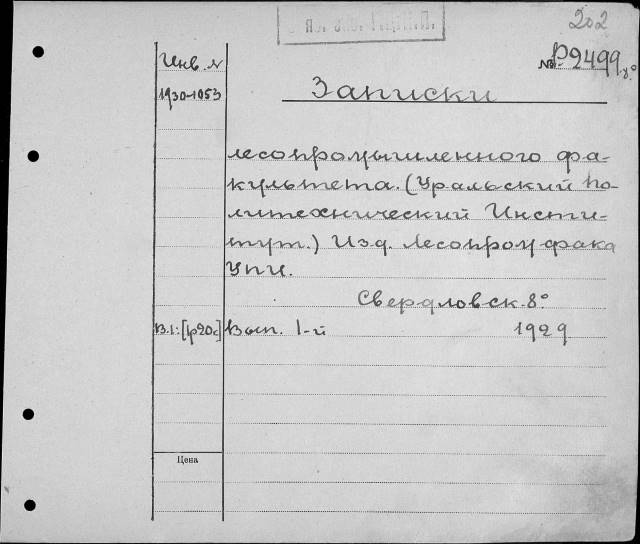 202
Инв. №
№ Р-2499 8°
1930-1053
Записки
лесопромышленного фа-
культета. (Уральский По-
литехнический Инсти-
тут.) Изд. Лесопромфака
УПИ.
Свердловск. 8°
В.1: [1р20с] Вып. 1-й 1929
Цена